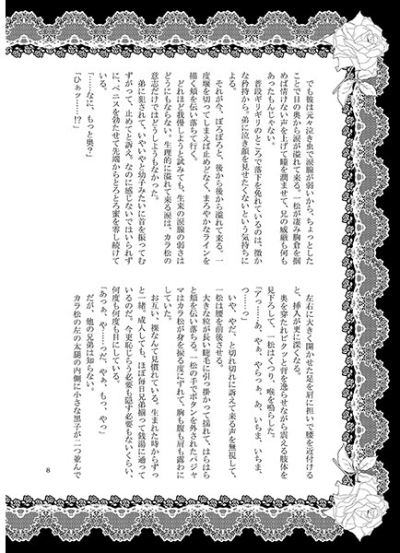 でも彼は元々泣き虫で涙腺が弱いから、ちょっとした
ことで目の奥から涙が溢れて来る。一松が凄み胸倉を掴
めば情けない声を上げて瞳を潤ませて、兄の威厳も何も
あったもんじゃない。
普段ギリギリのところで落下を免れているのは、微か
な矜持から。弟に泣き顔を見せたくないという気持ちに
よる。
それが今、ぽろぽろと、後から後から溢れて来る。一
度堰を切ってしまえば止めどなく、まろやかなラインを
描く頬を伝い落ちて行く。
どれほど我慢しようと試みても、生来の涙腺の弱さは
どうにもならない。生理的に溢れて来る涙は、カラ松の
意志だけではどうしようもなかった。
弟に犯されて、いやいやと幼子みたいに首を振ってむ
ずがって、止めてと訴え。なのに感じないではいられず
に、ペニスを勃たせて先端からとろとろ蜜を零し続けて
いた。
「……なに、もっと奥？」
「ひぁッ……!?」
左右に大きく開かせた足を肩に担いで腰を近付ける
と、挿入が更に深くなる。
奥を穿たれビクッと背を逸らせながら震える肢体を
見下ろして、一松はくつり、喉を鳴らした。
「アっ……あ、やぁ、やらっぁ、あ、いちま、いちま、
つ……っ」
いや、やだ、と切れ切れに訴えて来る声を無視して、
一松は腰を前後させる。
大きな粒が長い睫毛に引っ掛かって揺れて、はらはら
と頬を伝い落ちる。一松の手でボタンを外されたパジャ
マはカラ松が身を捩る度にずれて、胸も腹も肩も露わに
していた。
お互い、裸なんて見慣れている。生まれた時からずっ
と一緒、成人しても、ほぼ毎日兄弟揃って銭湯に通って
いるのだ。今更恥じらう必要も隠す必要もないくらい、
何度も何度も目にしている。
「あっぁ、やーーっだ、やぁ、もっ、やっ」
だが、他の兄弟は知らない。
カラ松の左の太腿の内側に小さな黒子が二つ並んで
8